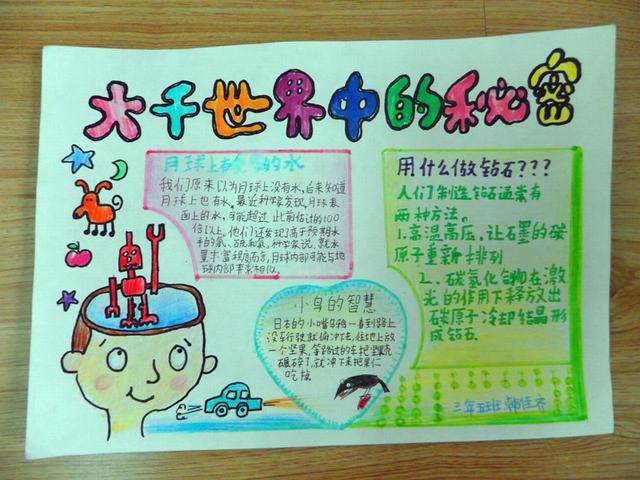 大千世界中的秘密
月球上有 的水
我们原来以为月球上没有水,后来知道
月球上也有水。最近科学家发现,月球表
面上的水,可能超过此前估计的100
倍以上。他们还发现了高于预期水
平的氯、硫和氟,科学家说,就水
量丰富程度而言,月球内部可能与地
球内部非常相似。
小鸟的智慧
日本的小嘴乌鸦一看到路上
没车行驶就俯冲下去,在地上放
一个坚果,等路过的车把坚壳
碾碎了,就冲下来把果仁
吃掉
用什么做钻石???
人们制造钻石通常有
两种方法。
1.高温高压,让石墨的碳
原子重新排列
2.碳氢化合物在激
光的作用下释放出
碳原子冷却结晶形
成钻石.
三年五班